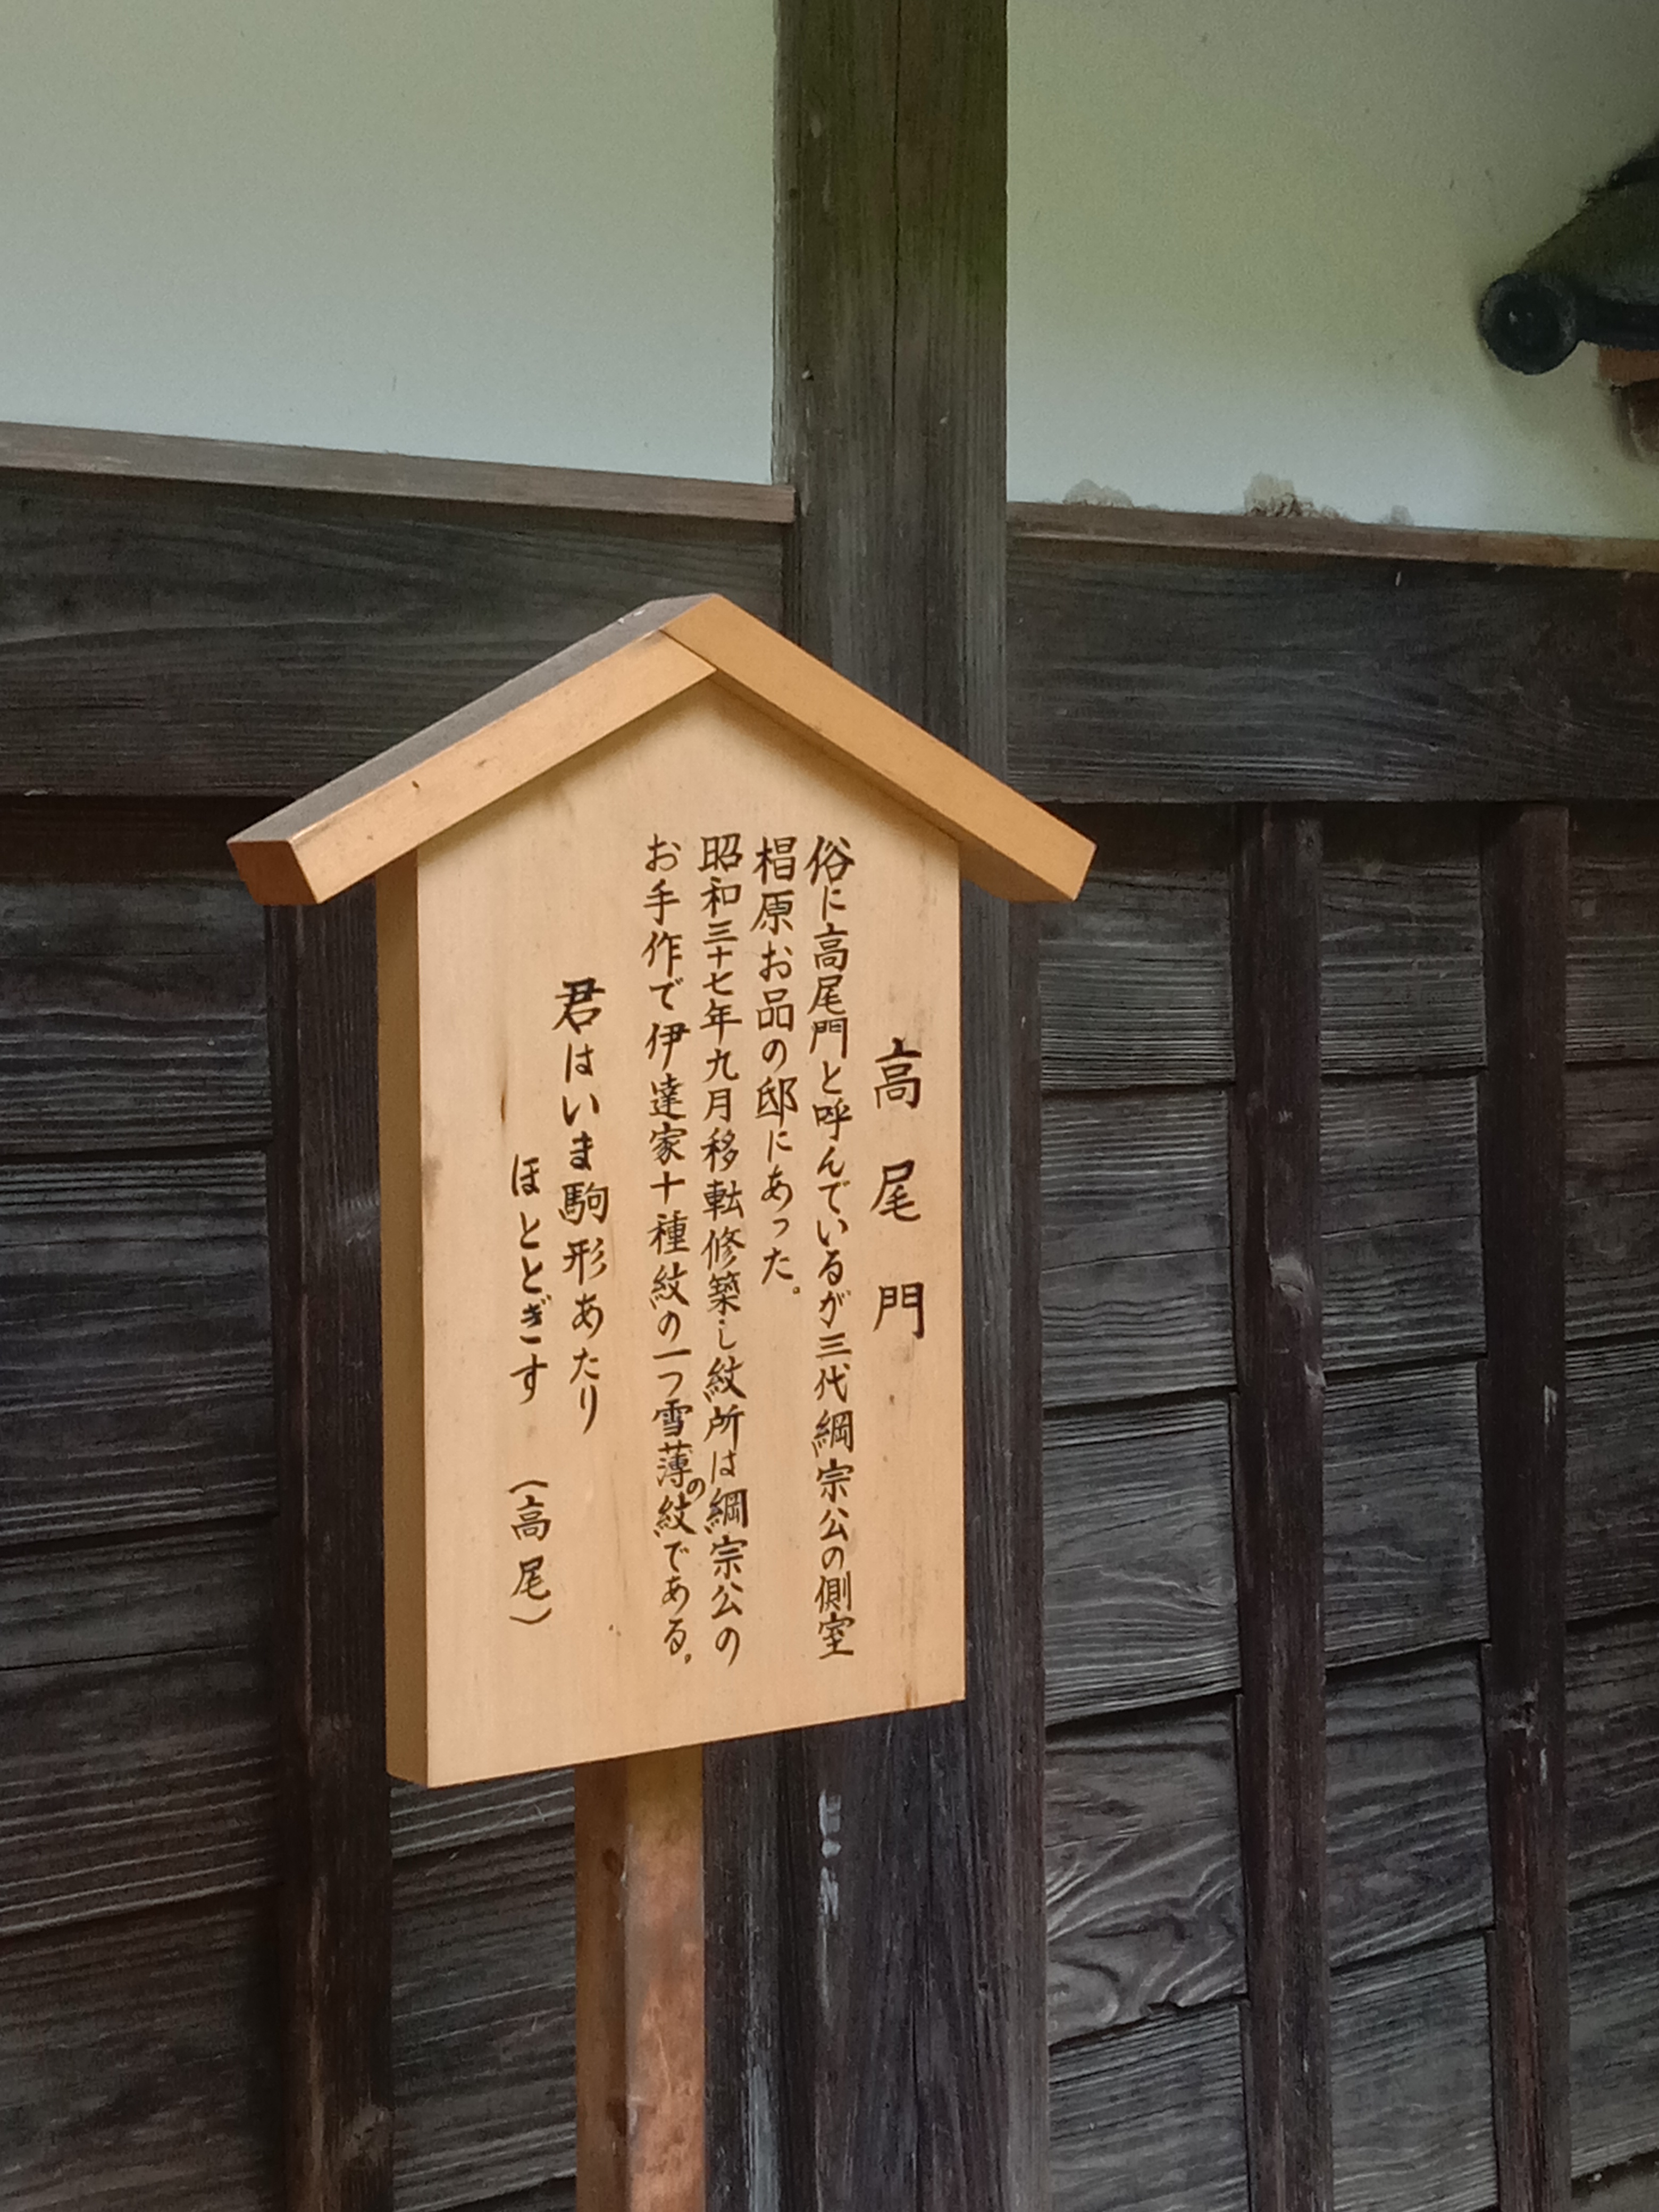 高尾門
俗に高尾門と呼んでいるが三代綱宗公の側室
椙原お品の邸にあった。
昭和三十七年九月移転修築し紋所は綱宗公の
お手作で伊達家十種紋の一つ雪薄の紋である。
君はいま駒形あたり
ほととぎす (高尾)